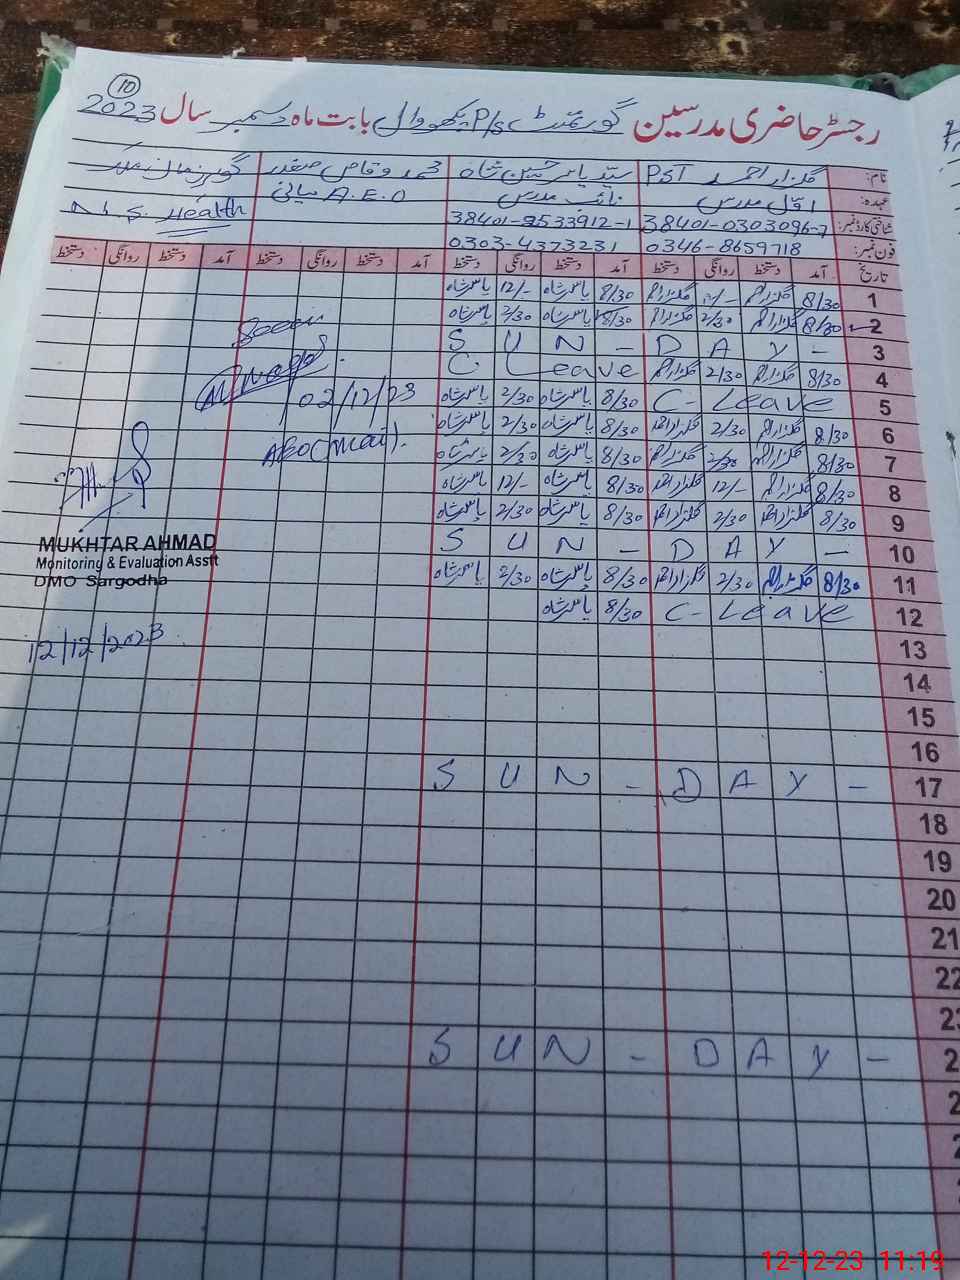 10
رجسٹر حاضری مدرسین گورنمنٹ P/s پکھووال بابت ماہ دسمبر سال 2023
نام: گلزار احمد PST سید یاسر حسین شاہ محمد وقاص صفدر
عہدہ: اول مدرس نائب مدرس A.E.O میانی N.S. Health
شناختی کارڈ نمبر: 38401-0303096-7 38401-9533912-1
فون نمبر: 0346-8659718 0303-4373231
تاریخ آمد دستخط روانگی دستخط آمد دستخط روانگی دستخط آمد دستخط روانگی دستخط آمد دستخط روانگی دستخط
1 8/30 گلزار احمد 12/- گلزار احمد 8/30 یاسر شاہ 12/- یاسر شاہ
2 8/30 گلزار احمد 2/30 گلزار احمد 8/30 یاسر شاہ 2/30 یاسر شاہ
3 S U N - D A Y -
4 8/30 گلزار احمد 2/30 گلزار احمد C Leave
5 C-Leave 8/30 یاسر شاہ 2/30 یاسر شاہ
6 8/30 گلزار احمد 2/30 گلزار احمد 8/30 یاسر شاہ 2/30 یاسر شاہ
7 8/30 گلزار احمد 2/30 گلزار احمد 8/30 یاسر شاہ 2/30 یاسر شاہ
8 8/30 گلزار احمد 12/- گلزار احمد 8/30 یاسر شاہ 12/- یاسر شاہ
9 8/30 گلزار احمد 2/30 گلزار احمد 8/30 یاسر شاہ 2/30 یاسر شاہ
10 S U N - D A Y -
11 8/30 گلزار احمد 2/30 گلزار احمد 8/30 یاسر شاہ 2/30 یاسر شاہ
12 C-Leave 8/30 یاسر شاہ
13
14
15
16
17 S U N - D A Y -
18
19
20
21
22
23
S U N - D A Y -
Seen
02/12/23
MUKHTAR AHMAD
Monitoring & Evaluation Asstt
DMO Sargodha
12/12/2023
12-12-23 11:19